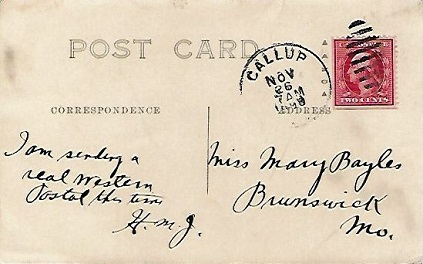 POST CARD
CALLUP
NOV
26
AM
TWO CENTS
CORRESPONDENCE
ADDRESS
I am sending a
real Western
Postal this time
H. M. J.
Miss Mary Bayles
Brunswick
Mo.